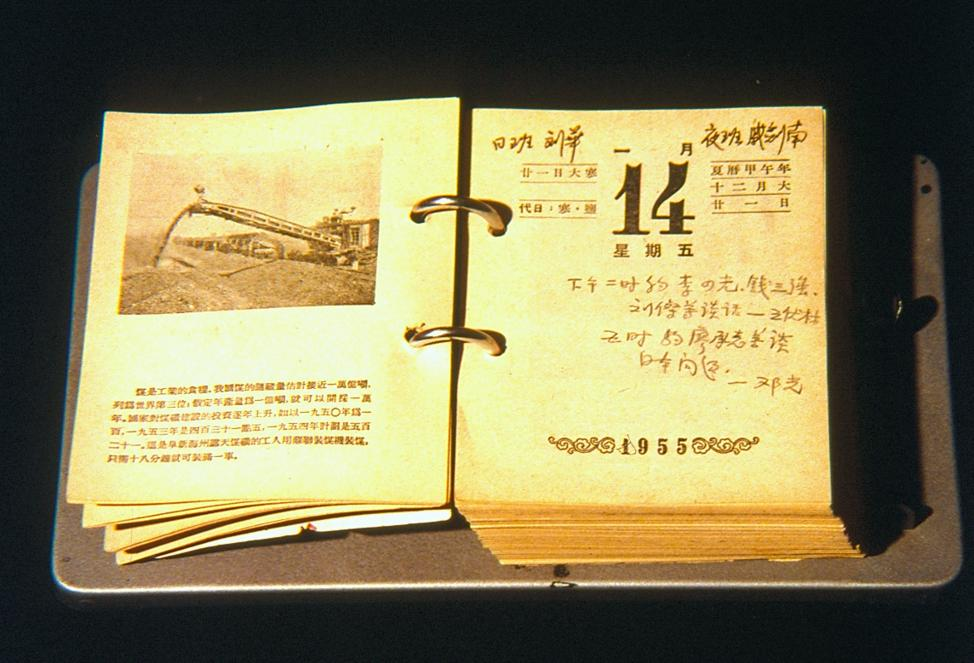 煤是工業的食糧。我國煤的儲藏量估計接近一萬億噸,
列爲世界第三位;假定年產量爲一億噸,就可以開採一萬
年。國家對煤礦建設的投資逐年上升,如以一九五〇年爲一
百,一九五三年是四百三十一點五,一九五四年計劃是五百
二十一。這是阜新海州露天煤礦的工人用聯裝煤機裝煤,
只需十八分鐘就可裝滿一車。
日班 刘華
夜班 戚剑南
一 月
廿一日大寒
夏曆甲午年
14
十二月大
代日:寒
廿一日
星期五
下午二时约李四光、钱三强、
刘傑等谈话—
五时 约廖承志等谈
日本问题.
—邓光
1955